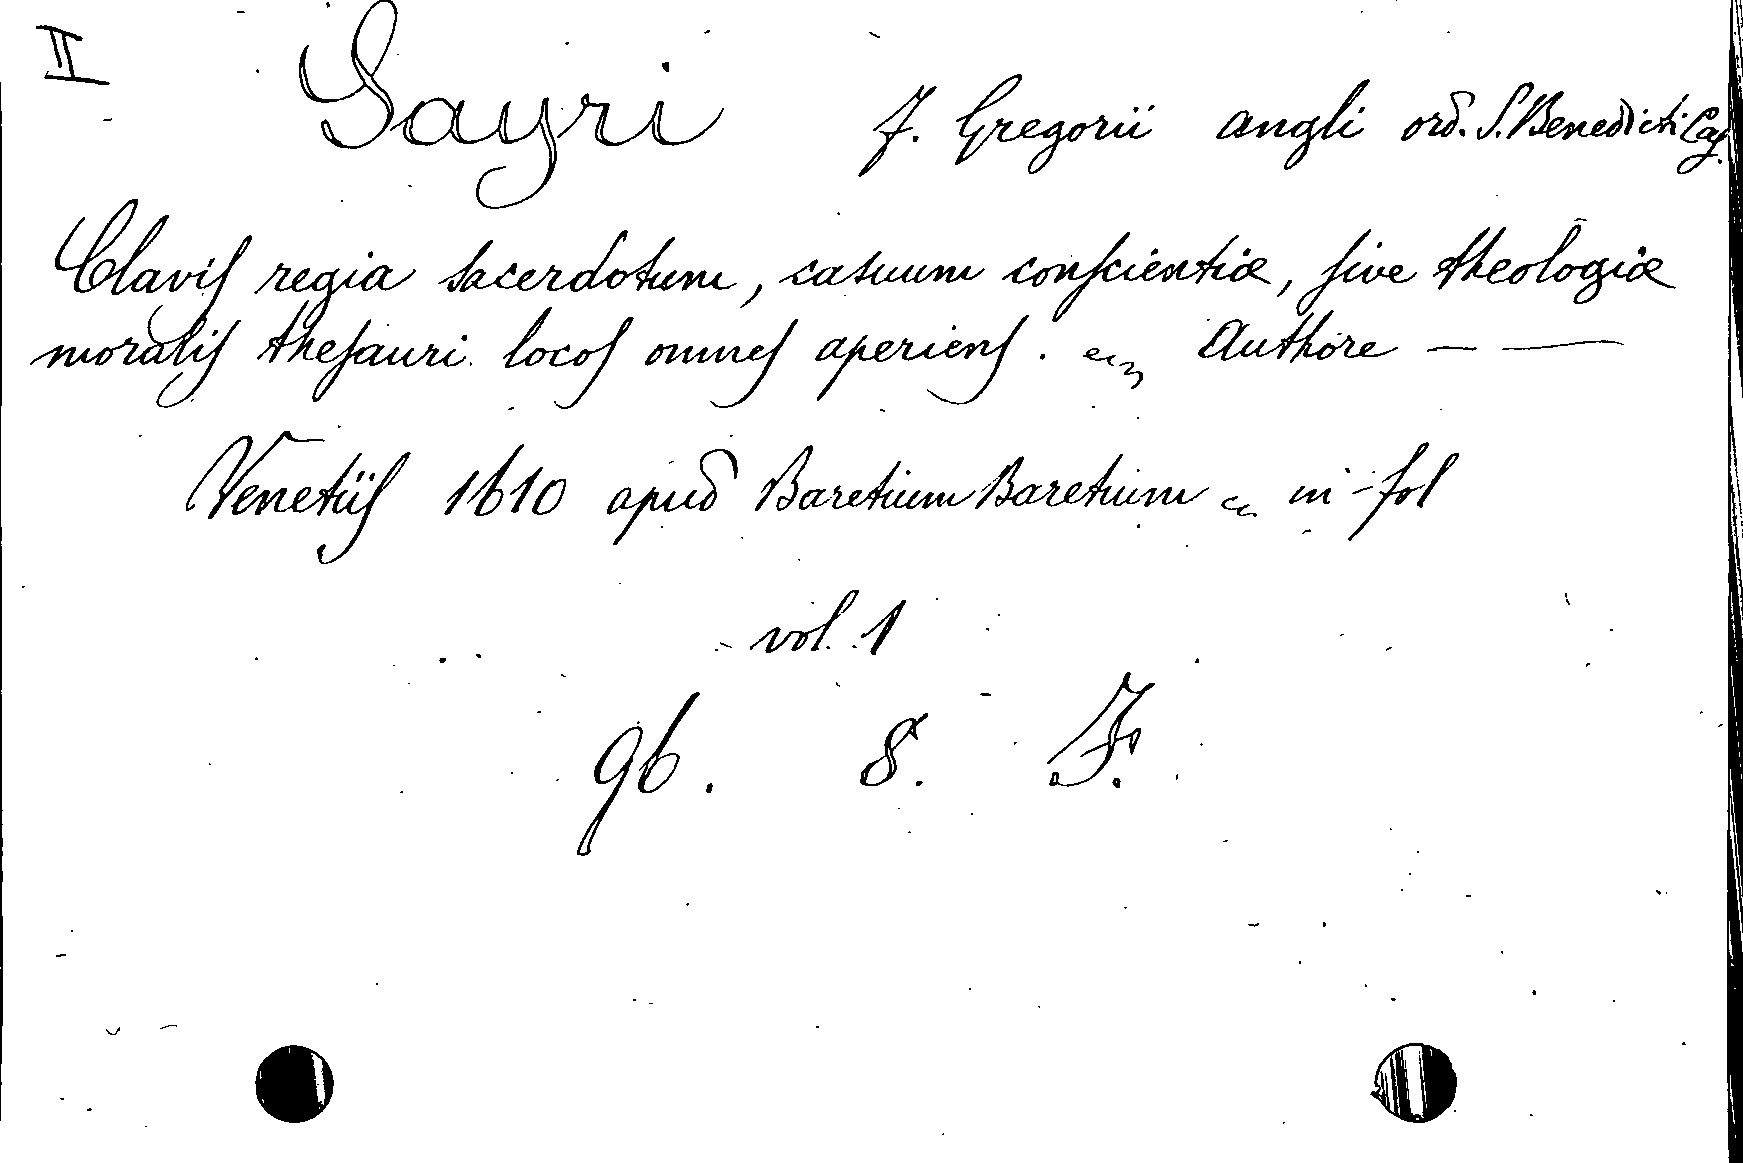 II Sayri F. Gregorii angli ord. S. Benedicti Cas.
Clavis regia sacerdotum, casuum conscientiæ, sive theologiæ
moralis thesauri locos omnes aperiens. Authore — —
Venetiis 1610 apud Baretium Baretium in-fol
vol. 1
96. 8. F.